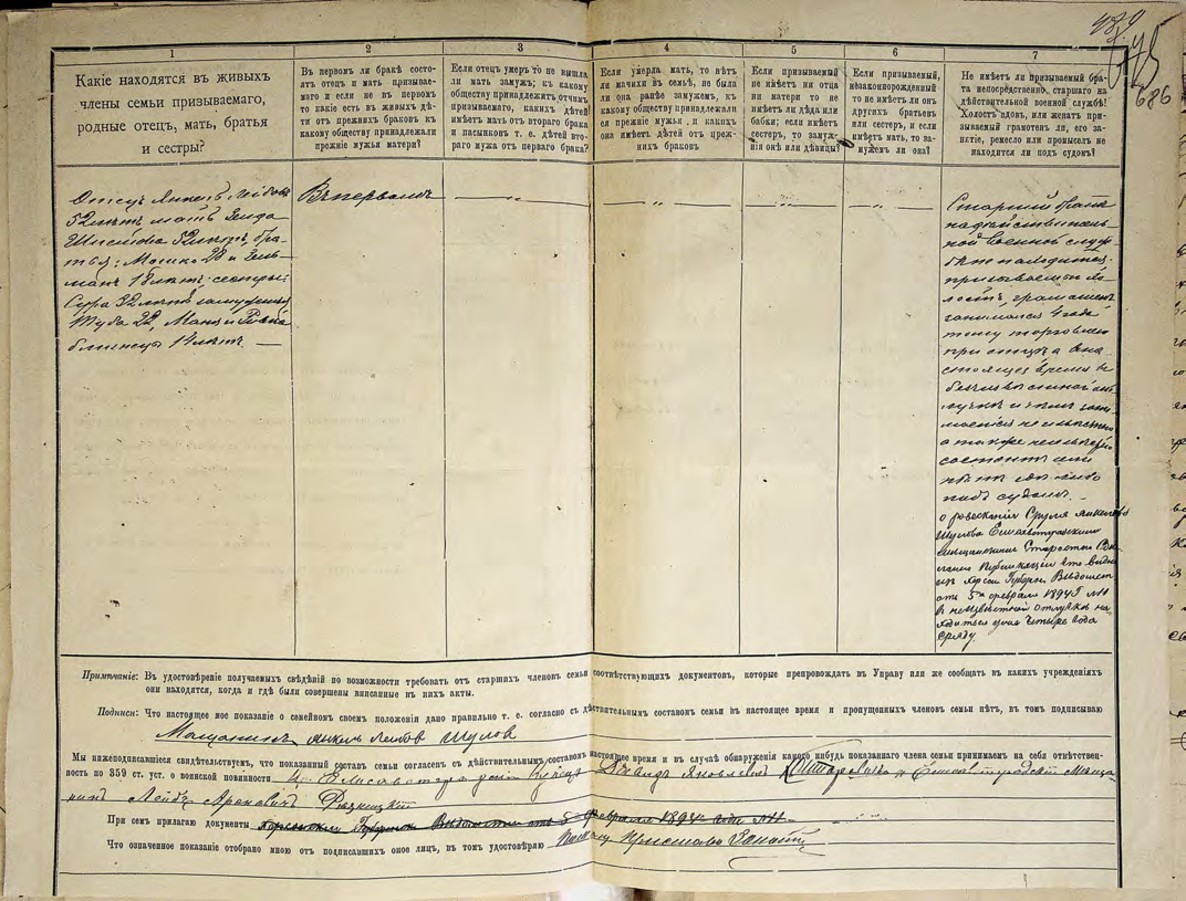 686
1
2
3
4
5
6
7
Какіе находятся въ живыхъ
члены семьи призываемаго,
родные отецъ, мать, братья
и сестры?
Въ первомъ ли бракѣ состо-
ятъ отецъ и мать призывае-
маго и если не въ первомъ
то какіе есть въ живыхъ дѣ-
ти отъ прежнихъ браковъ къ
какому обществу принадлежали
прежніе мужья матери?
Если отецъ умеръ то не вышла
ли мать замужъ; къ какому
обществу принадлежитъ отчимъ
призываемаго, какихъ дѣтей
имѣетъ мать отъ втораго брака
и пасынковъ т. е. дѣтей вто-
раго мужа отъ перваго брака?
Если умерла мать, то нѣтъ
ли мачихи въ семьѣ, не была
ли она ранѣе замужемъ, къ
какому обществу принадлежали
ея прежніе мужья и какихъ
она имѣетъ дѣтей отъ преж-
нихъ браковъ
Если призываемый
не имѣетъ ни отца
ни матери то не
имѣетъ ли дѣда или
бабки; если имѣетъ
сестеръ, то замуж-
нія онѣ или дѣвицы?
Если призываемый,
незаконорожденный
то не имѣетъ ли онъ
другихъ братьевъ
или сестеръ, и если
имѣетъ мать, то за-
мужемъ ли она?
Не имѣетъ ли призываемый бра-
та непосредственно старшаго на
дѣйствительной военной службѣ?
Холостъ вдовъ, или женатъ при-
зываемый грамотенъ ли, его за-
нятіе, ремесло или промыселъ не
находится ли подъ судомъ?
Отецъ Янкель Лейбовъ
52 лѣтъ мать Зельда
52 лѣтъ, бра-
тья: Мошко 28 и Зель-
манъ 18 лѣтъ сестры:
Сура 32 лѣтъ замужняя
Туба 22, Маня и
близнецы 14 лѣтъ. —
Въ первомъ
Старшій братъ
на дѣйствитель-
ной военной служ-
бѣ не находится.
призываемый хо-
лостъ, грамотенъ
занимался 4 года
тому торговлею
при отцѣ а въ на-
стоящее время въ
безъизвѣстной от-
лучкѣ и чѣмъ зани-
мается неизвѣстно
а также неизвѣстно
состоитъ или
нѣтъ гдѣ либо
подъ судомъ. —
о розысканіи Сруля Янкелева
Шулова Елисаветградскимъ
мѣщанскимъ Старостою
публикація что видно
изъ Херсон. Губерн. Вѣдомост.
отъ 5го февраля 1894 г.
въ неизвѣстной отлучкѣ на-
ходится уже четыре года
сряду.
Примѣчаніе: Въ удостовѣреніе получаемыхъ свѣдѣній по возможности требовать отъ старшихъ членовъ семьи соотвѣтствующихъ документовъ, которые препровождать въ Управу или же сообщать въ какихъ учрежденіяхъ
они находятся, когда и гдѣ были совершены вписанные въ нихъ акты.
Подписи: Что настоящее мое показаніе о семейномъ своемъ положеніи дано правильно т. е. согласно съ дѣйствительнымъ составомъ семьи въ настоящее время и пропущенныхъ членовъ семьи нѣтъ, въ томъ подписываю
Мѣщанинъ Янкель Лейбовъ Шуловъ
Мы нижеподписавшіе свидѣтельствуемъ, что показанный составъ семьи согласенъ съ дѣйствительнымъ составомъ настоящее время и въ случаѣ обнаруженія какого нибудь показаннаго члена семьи принимаемъ на себя отвѣтствен-
ность по 359 ст. уст. о воинской повинности Елисаветградскій Купецъ Давидъ Яковлевъ и Елисаветградскій Мѣща-
нинъ Лейбъ Ароновичъ
При семъ прилагаю документы Херсонскія Губернск. Вѣдомости отъ 5 февраля 1894 года
Что означенное показаніе отобрано мною отъ подписавшихъ оное лицъ, въ томъ удостовѣряю